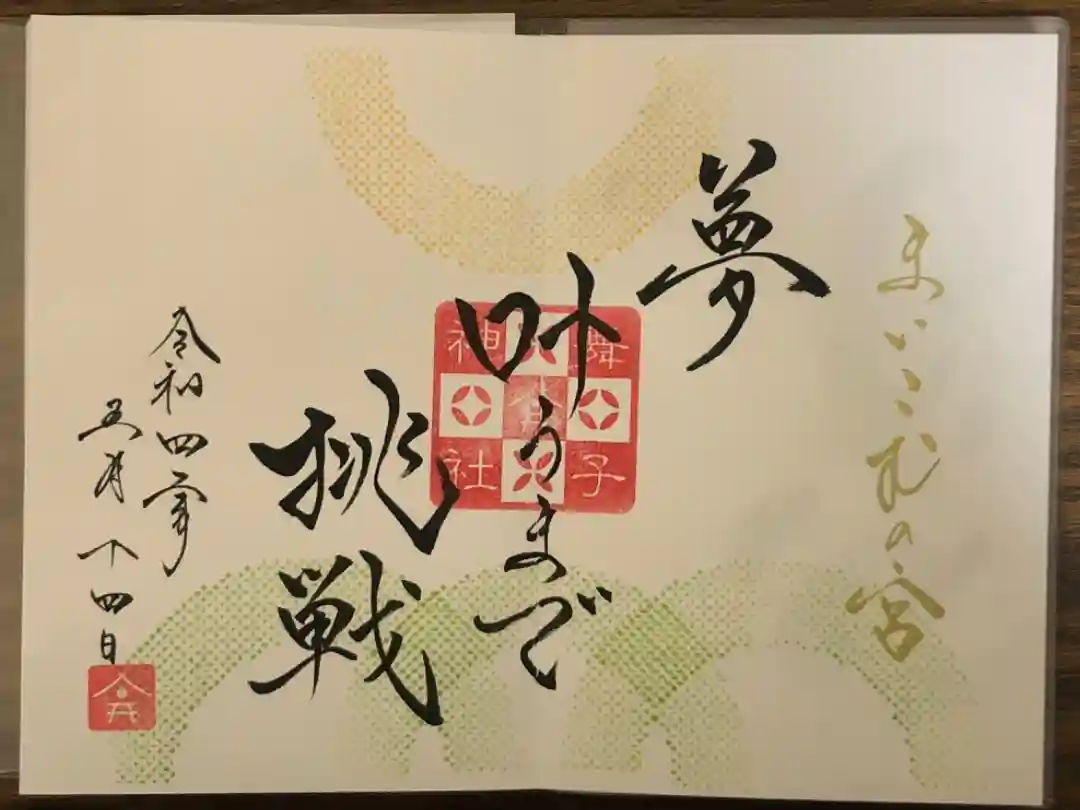 まいこむの宮
夢
叶うまで
挑戦
舞子
神社
令和四年
五月十四日